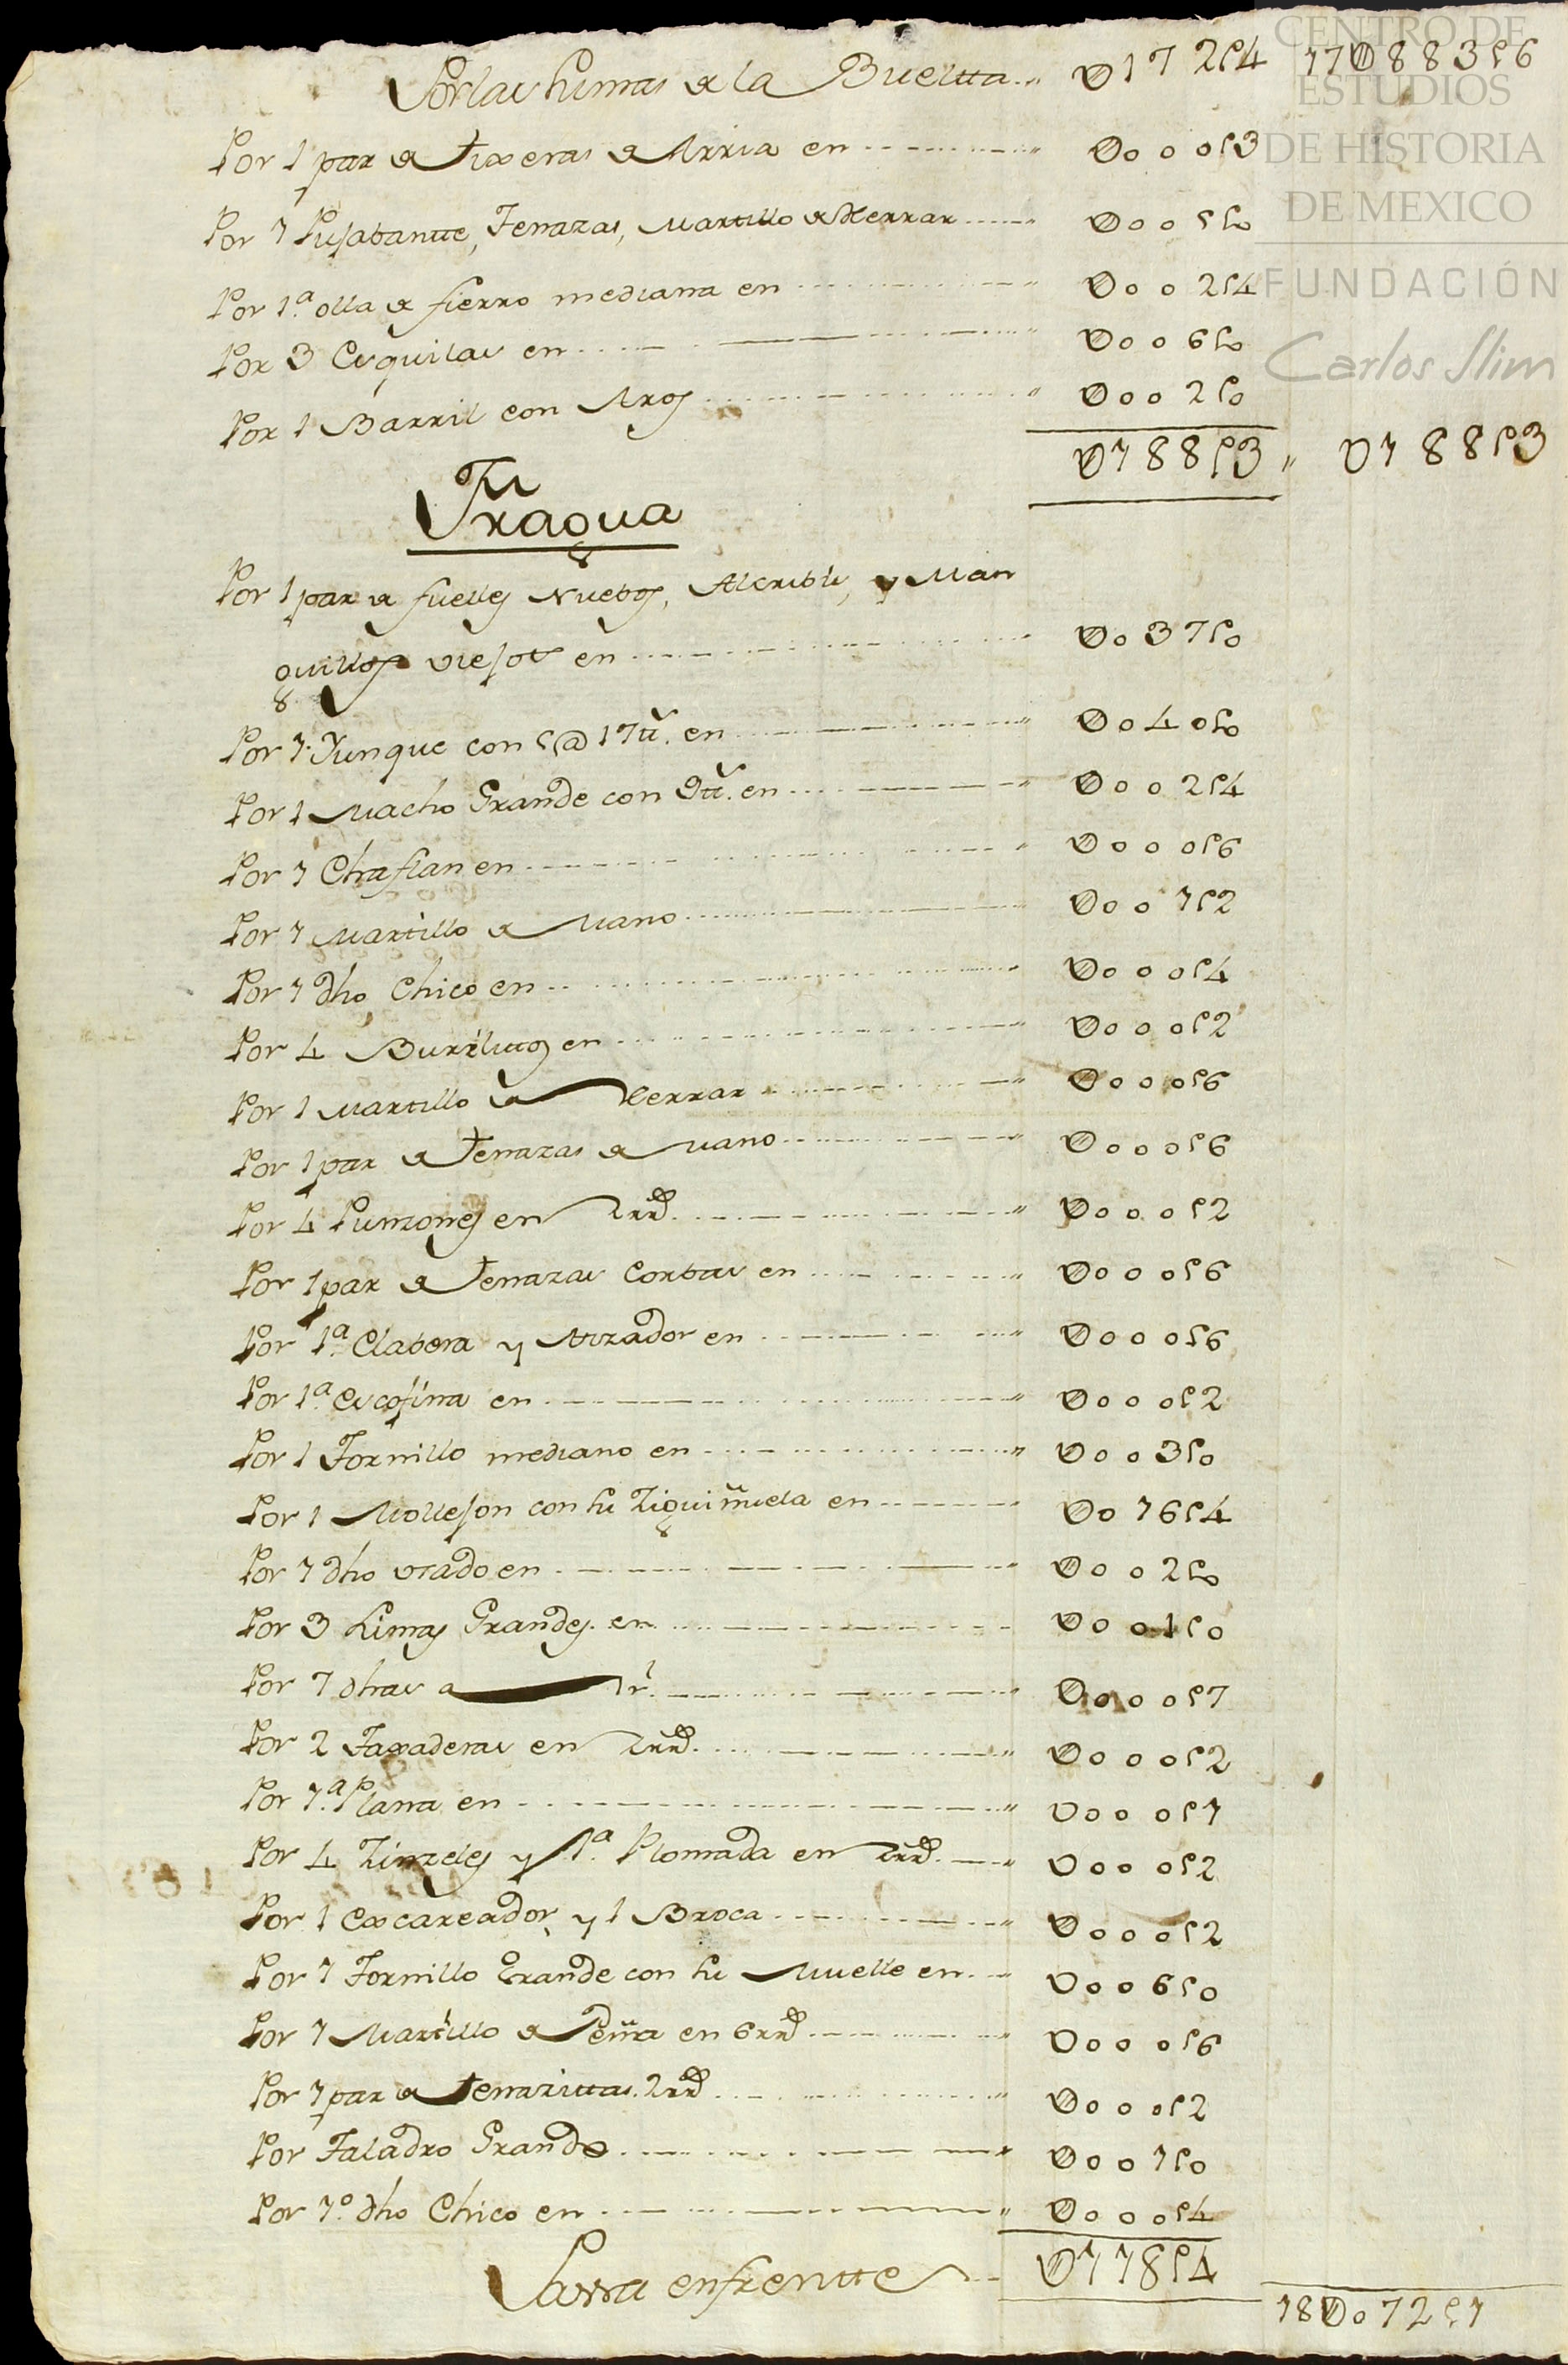 Por las sumas de la Buelta Ɖ172ʃ4 17Ɖ883ʃ6
CENTRO DE
ESTUDIOS
DE HISTORIA
DE MEXICO
FUNDACIÓN
Carlos Slim
Por 1 par de Tixeras de Arria en Ɖ000ʃ3
Por 1 Pujabantte, Tenazas, Martillo de Herrar Ɖ005ʃ0
Por 1.ª olla de fierro mediana en Ɖ002ʃ4
Por 3 Esquilas en Ɖ006ʃ0
Por 1 Barril con Aros Ɖ002ʃ0
Ɖ188ʃ3 Ɖ188ʃ3
Fragua
Por 1 par de fuelles Nuebos, Alcribis, y Man
guillos viejos en Ɖ037ʃ0
Por 1 Yunque con 5@ 17 tt. en Ɖ040ʃ0
Por 1 Macho Grande con 9 tt. en Ɖ002ʃ4
Por 1 Chaflan en Ɖ000ʃ6
Por 1 Martillo de Mano Ɖ001ʃ2
Por 1 dho Chico en Ɖ000ʃ4
Por 4 Burilitos en Ɖ000ʃ2
Por 1 Martillo de Herrar Ɖ000ʃ6
Por 1 par de Tenazas de Mano Ɖ000ʃ6
Por 4 Punzones en 2 rrs. Ɖ000ʃ2
Por 1 par de Tenazas Corbas en Ɖ000ʃ6
Por 1.ª Clabera y Atizador en Ɖ000ʃ6
Por 1.ª Escofina en Ɖ000ʃ2
Por 1 Tornillo mediano en Ɖ003ʃ0
Por 1 Mollejon con su Zigüiñuela en Ɖ016ʃ4
Por 1 dho usado en Ɖ002ʃ0
Por 3 Limas Grandes en Ɖ001ʃ0
Por 7 dhas a 1 r.l Ɖ000ʃ7
Por 2 Taxaderas en 2 rrs. Ɖ000ʃ2
Por 1.ª Plana en Ɖ000ʃ1
Por 4 Zinzeles y 1.ª Plomada en 2 rrs. Ɖ000ʃ2
Por 1 Excareador, y 1 Broca Ɖ000ʃ2
Por 1 Tornillo Grande con su Muelle en Ɖ006ʃ0
Por 1 Martillo de Peña en 6 rrs Ɖ000ʃ6
Por 1 par de Tenazitas 2 rrs Ɖ000ʃ2
Por Taladro Grande Ɖ001ʃ0
Por 1.º dho Chico en Ɖ000ʃ4
Passa enfrentte Ɖ118ʃ4
18Ɖ072ʃ1